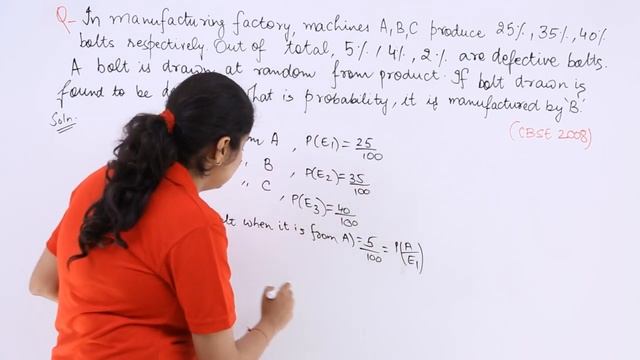 Q- In manufacturing factory, machines A,B,C produce 25%, 35%, 40%
bolts respectively. Out of total, 5%, 4%, 2% are defective bolts.
A bolt is drawn at random from product. If bolt drawn is
found to be what is probability, it is manufactured by 'B'.
(CBSE 2008)
Soln.
A, P(E1) = 25/100
" B, P(E2) = 35/100
" C, P(E3) = 40/100
when it is from A) = 5/100 = P(A/E1)